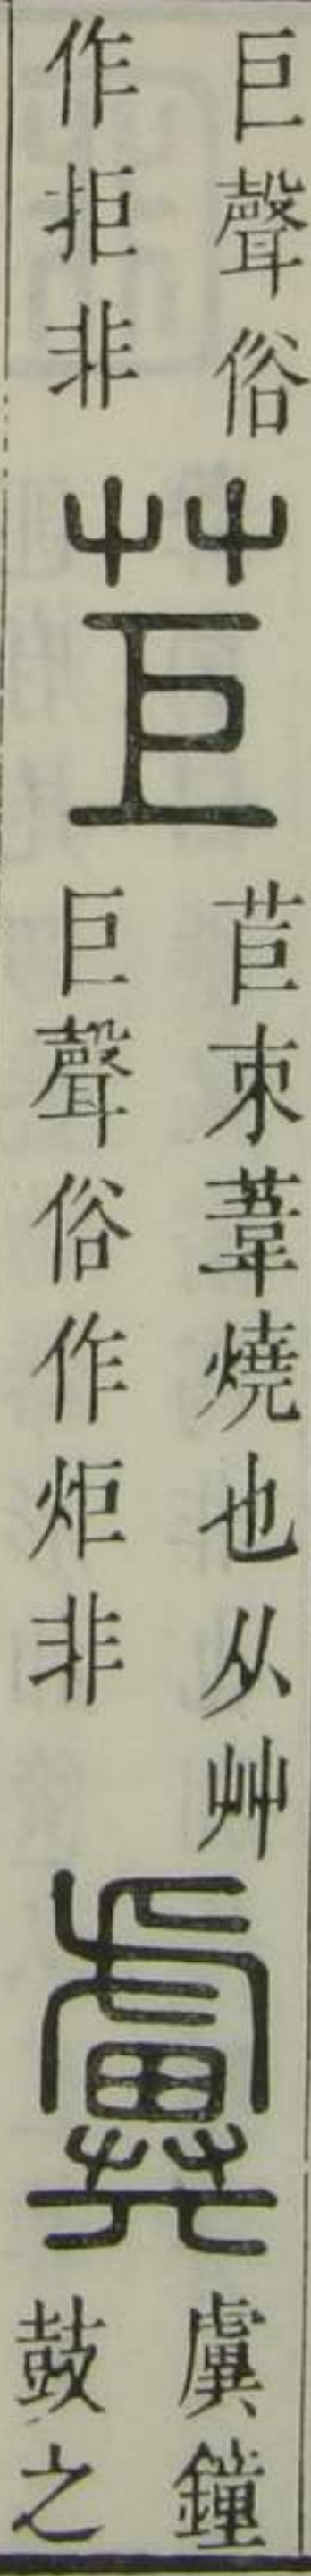 巨聲俗
作拒非
苣
苣束葦燒也从艸
巨聲俗作炬非
虡
虡鐘
鼓之